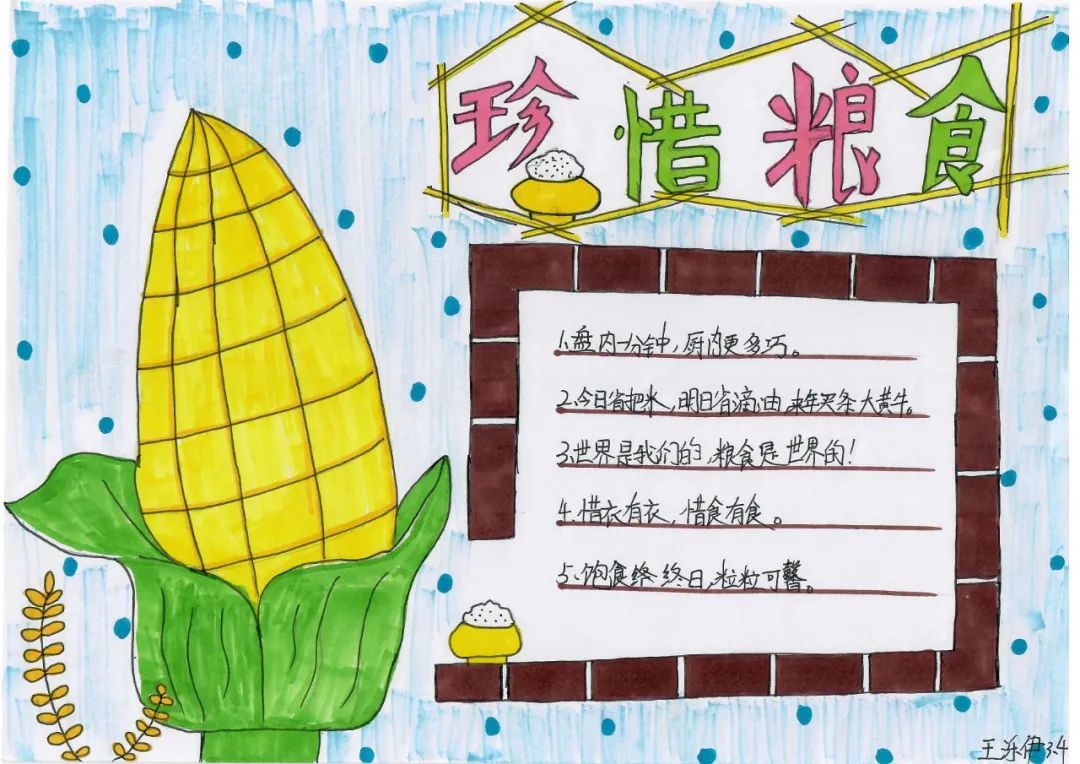 珍惜粮食
1.盘内一分钟,厨内更多巧。
2.今日省把米,明日省滴油 来年买条大黄牛。
3.世界是我们的,粮食是世界的!
4.惜衣有衣,惜食有食。
5.饱食终终日,粒粒可馨。
王乐伊3.4